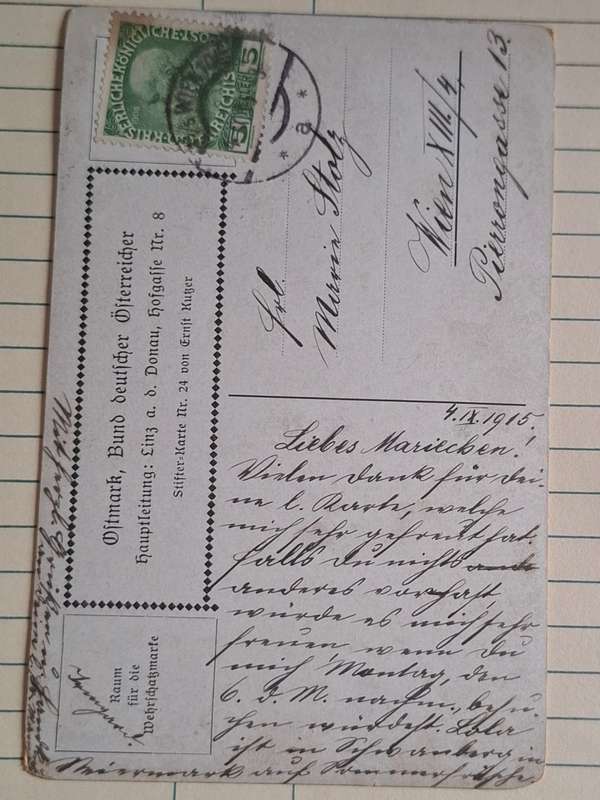 KAISERLICHE KÖNIGLICHE ÖSTERREICHISCHE POST
5 HELLER 5
WIEN
* a *
Oſtmark, Bund deutſcher Öſterreicher
Hauptleitung: Linz a. d. Donau, Hofgaſſe Nr. 8
Stifter-Karte Nr. 24 von Ernſt Kutzer
Raum
für die
Wehrſchatzmarke
Frl.
Marie Stolz
Wien XIII/4
Pierrongasse 13.
4.IX.1915.
Liebes Mariechen!
Vielen Dank für dei-
ne l. Karte, welche
mich sehr gefreut hat.
Falls du nichts
anderes vorhast
würde es mich sehr
freuen, wenn du
mich Montag, den
6. d. M. nachm. besu-
chen würdest. Lola
ist in Schwanberg in
Steiermark auf Sommerfrische
Mit herzl. Grüßen